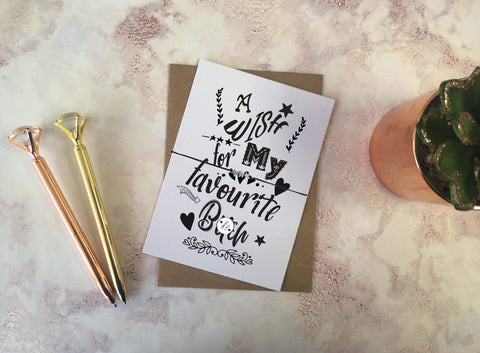 A
Wish
for My
favourite
Bitch